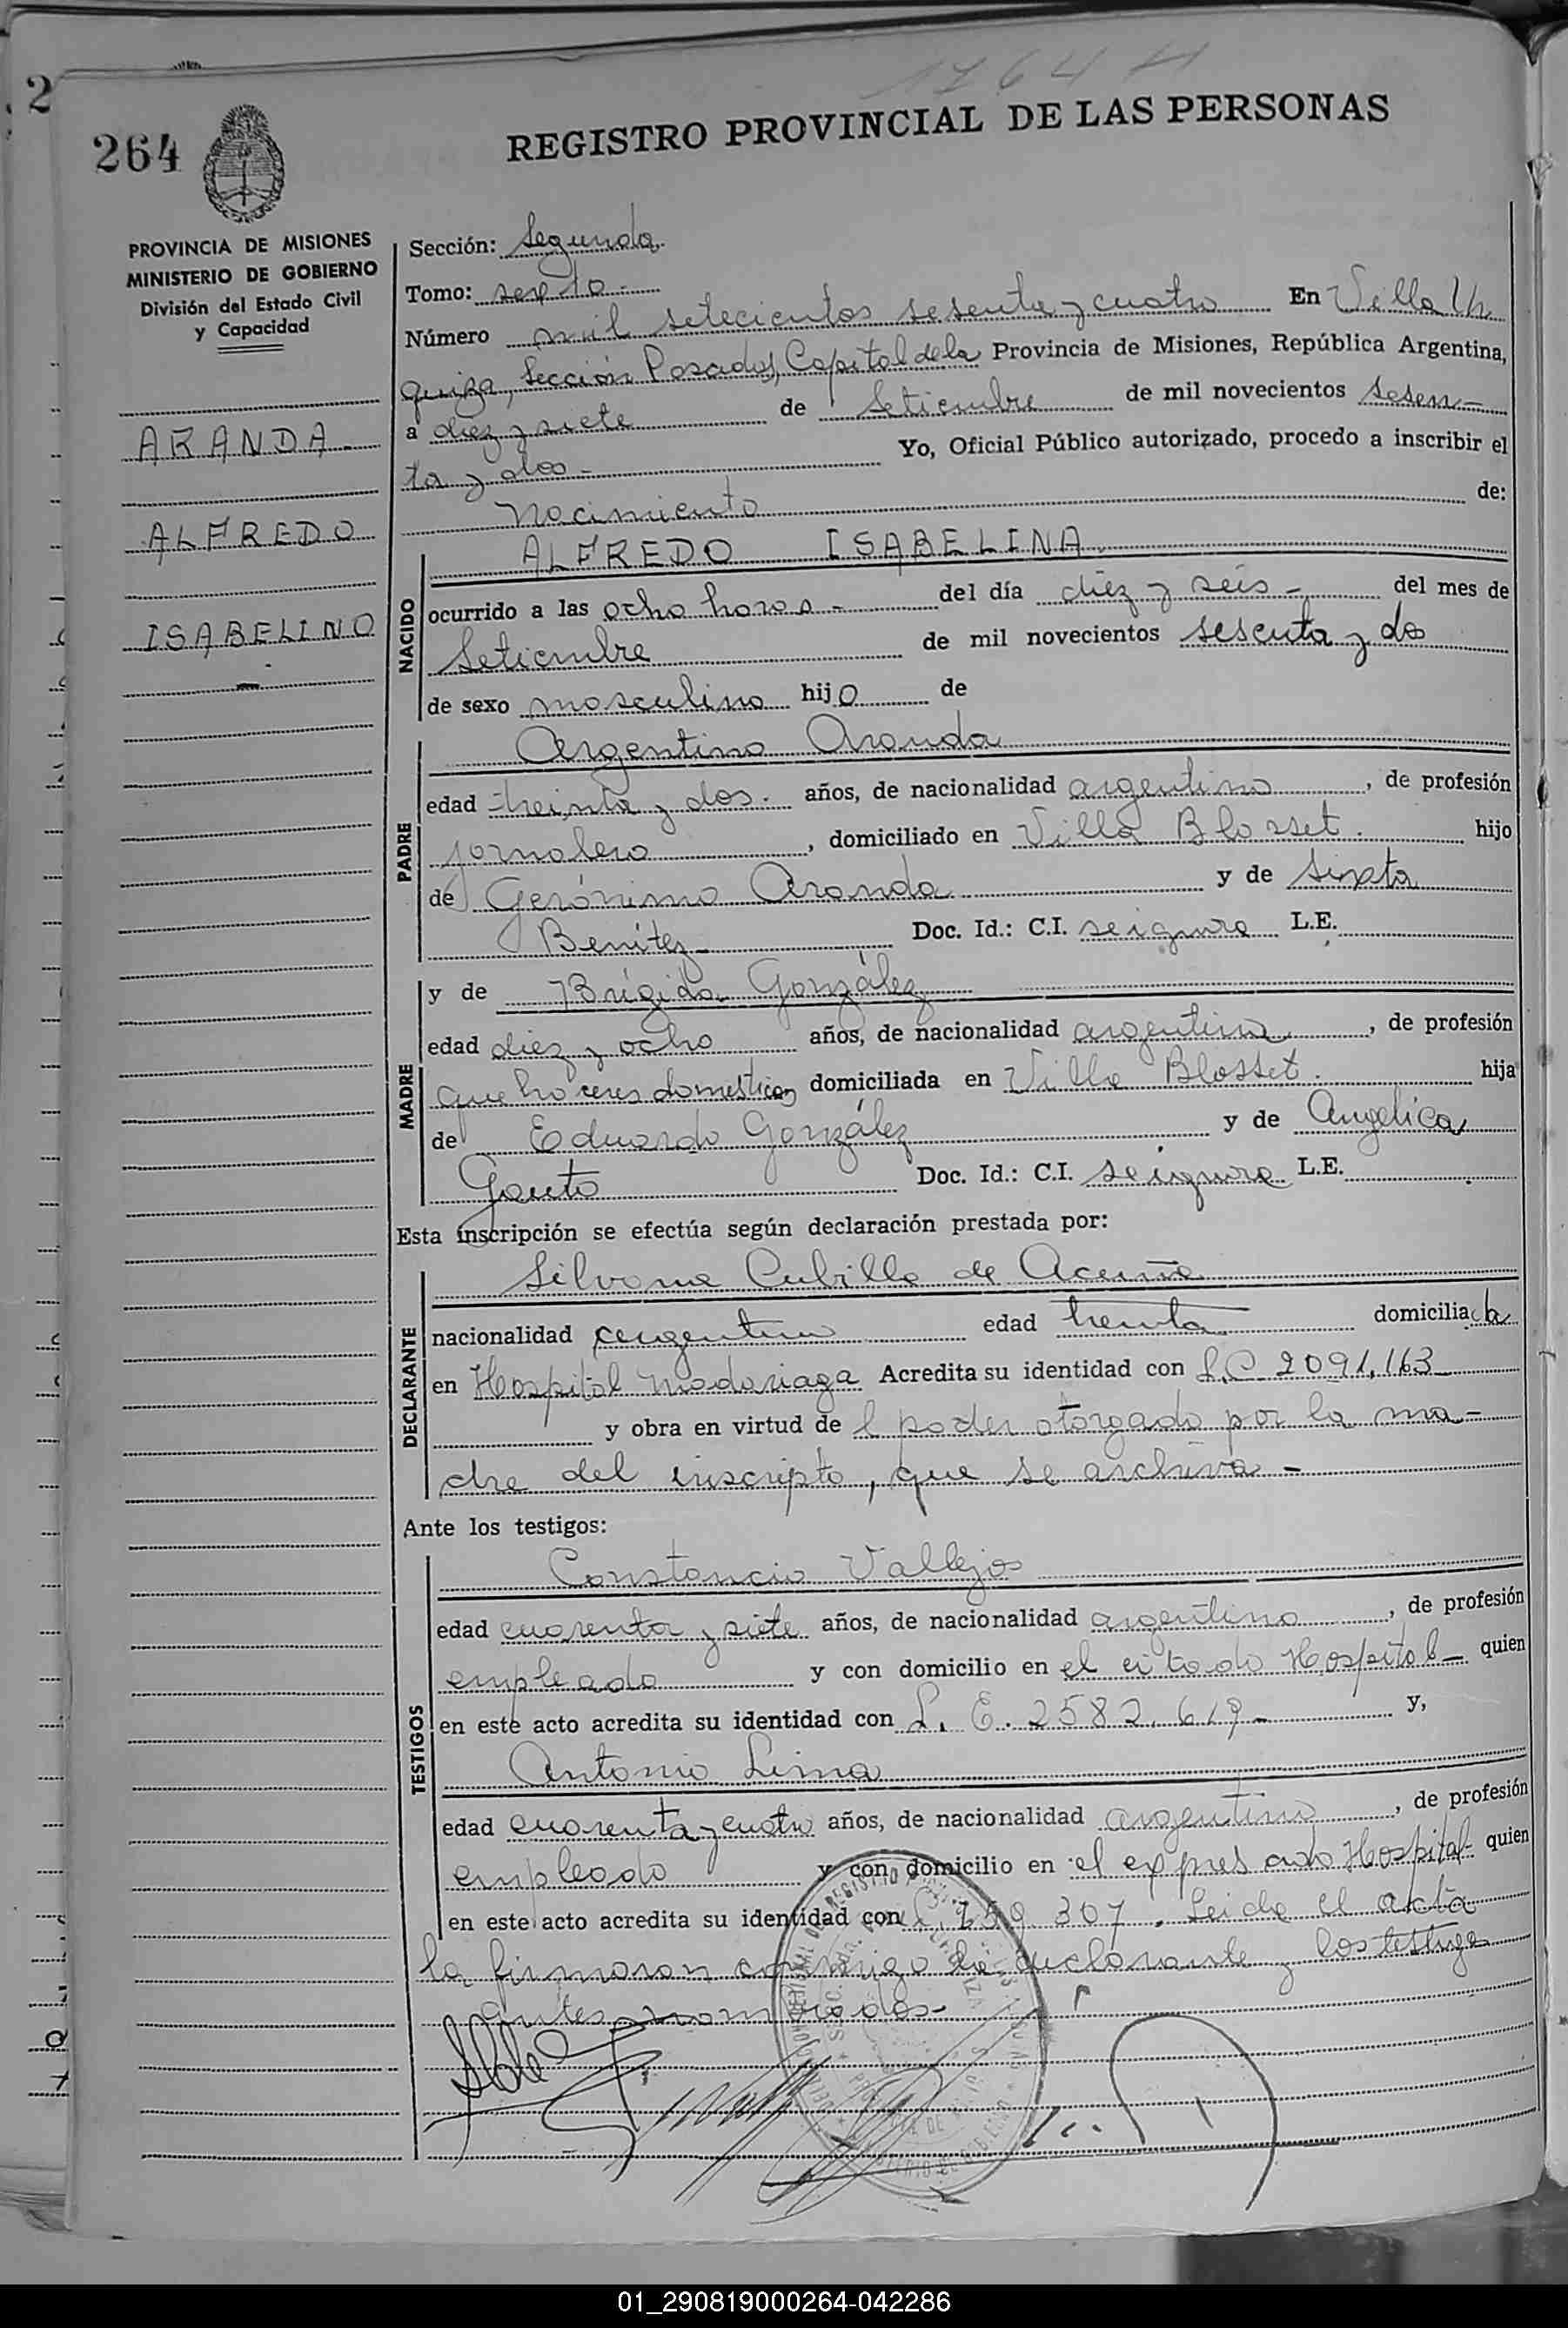 1764 H
2
264
REGISTRO PROVINCIAL DE LAS PERSONAS
PROVINCIA DE MISIONES
MINISTERIO DE GOBIERNO
División del Estado Civil
y Capacidad
ARANDA
ALFREDO
ISABELINO
Sección: Segunda
Tomo: sexto
Número mil setecientos sesenta y cuatro En Villa Ur
quiza, Sección Posadas, Capital de la Provincia de Misiones, República Argentina,
a diez y siete de Setiembre de mil novecientos sesen-
ta y dos- Yo, Oficial Público autorizado, procedo a inscribir el
Nacimiento de:
ALFREDO ISABELINA
NACIDO
ocurrido a las ocho horas - del día diez y seis - del mes de
Setiembre de mil novecientos sesenta y dos
de sexo masculino hijo de
PADRE
Argentino Aranda
edad treinta y dos. años, de nacionalidad argentino, de profesión
jornalero, domiciliado en Villa Blosset. hijo
de Gerónimo Aranda y de Sixta
Benítez- Doc. Id.: C.I. seignora L.E.
MADRE
y de Brígida González
edad diez y ocho años, de nacionalidad argentina, de profesión
que haceres domesticos domiciliada en Villa Blosset. hija
de Eduardo González y de Angelica
Gauto Doc. Id.: C.I. seignora L.E.
Esta inscripción se efectúa según declaración prestada por:
DECLARANTE
Silvana Cubilla de Acuña
nacionalidad argentina edad treinta domiciliada
en Hospital Madariaga Acredita su identidad con L.C 2091,163
y obra en virtud del poder otorgado por la ma-
dre del inscripto, que se archiva-
Ante los testigos:
TESTIGOS
Constancio Vallejos
edad cuarenta y siete años, de nacionalidad argentino, de profesión
empleado y con domicilio en el citado Hospital- quien
en este acto acredita su identidad con L. E. 2582,619- y,
Antonio Lima
edad cuarenta y cuatro años, de nacionalidad argentino, de profesión
empleado y con domicilio en el expresado Hospital- quien
en este acto acredita su identidad con 259 307. Leida el acta
la firmaron conmigo la declarante y los testigos
antes nombrados-
01_290819000264-042286